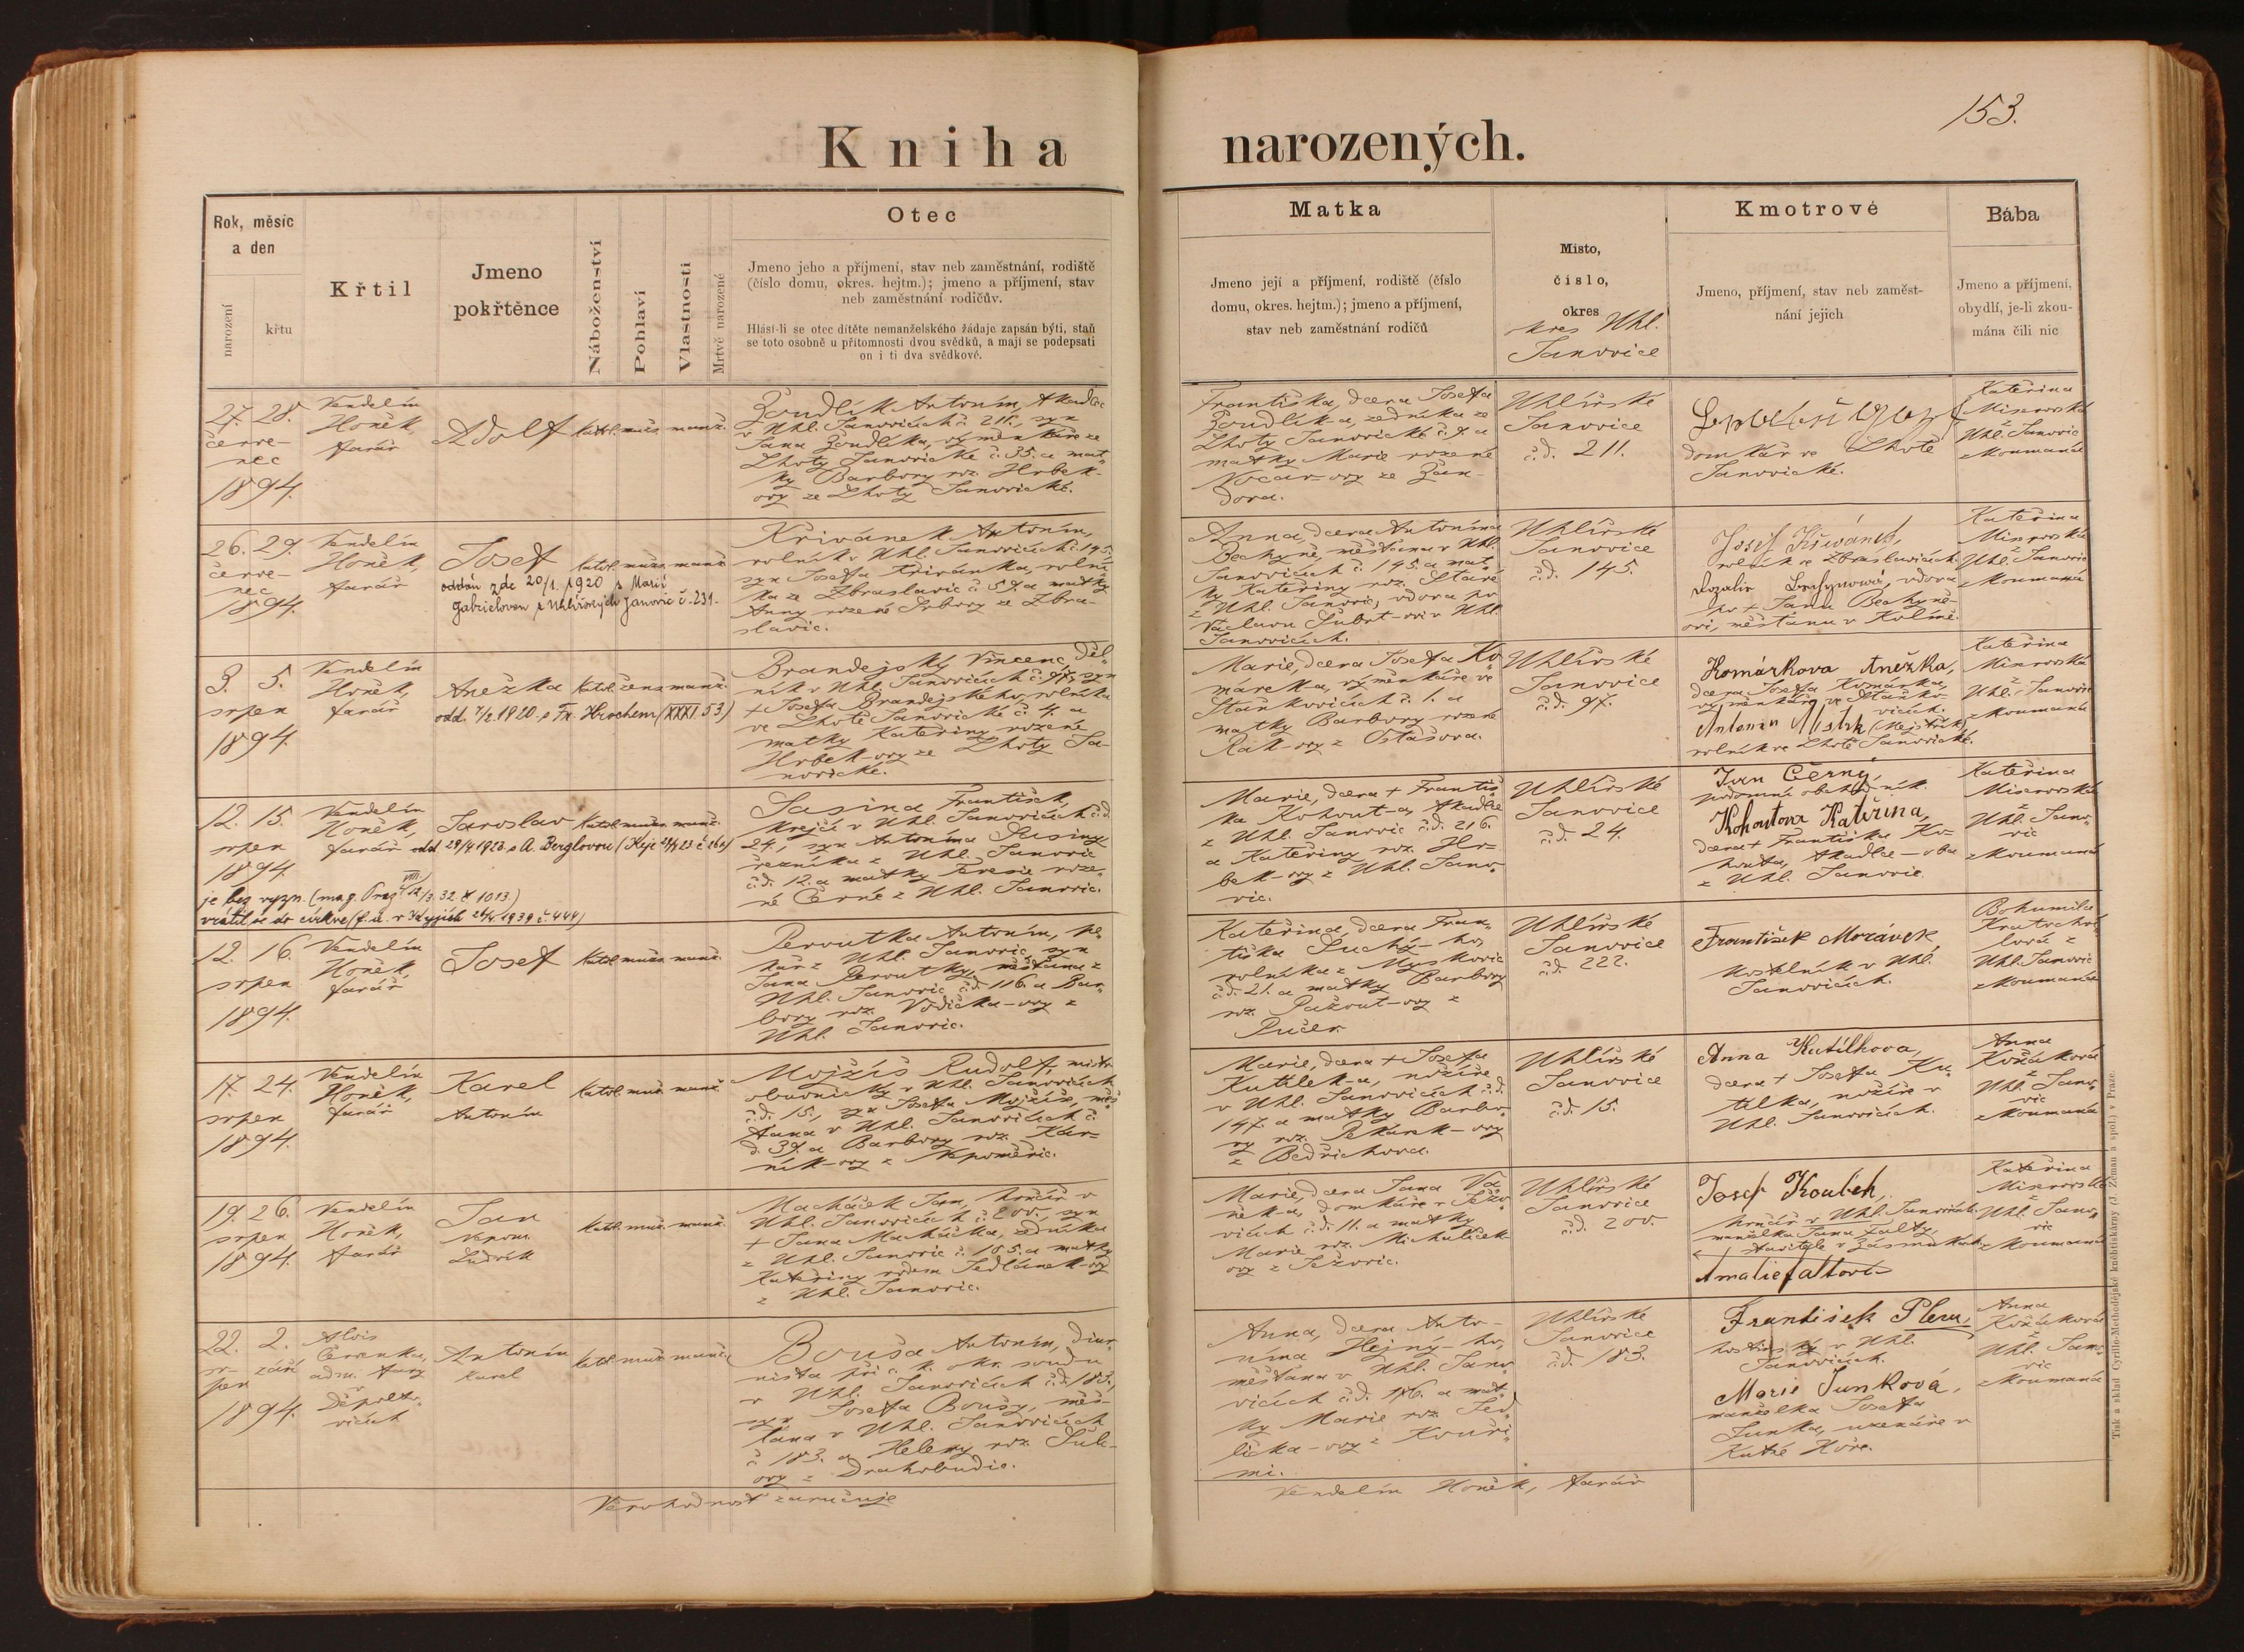 153.
Kniha narozených.
Rok, měsíc
a den
narození
křtu
Křtil
Jmeno
pokřtěnce
Náboženství
Pohlaví
Vlastnosti
Mrtvě narozené
Otec
Jmeno jeho a příjmení, stav neb zaměstnání, rodiště
(číslo domu, okres. hejtm.); jmeno a příjmení, stav
neb zaměstnání rodičův.
Hlásí-li se otec dítěte nemanželského žádaje zapsán býti, staň
se toto osobně u přítomnosti dvou svědků, a mají se podepsati
on i ti dva svědkové.
Matka
Jmeno její a příjmení, rodiště (číslo
domu, okres. hejtm.); jmeno a příjmení,
stav neb zaměstnání rodičů
Místo,
číslo,
okres
okres Uhl.
Janovice
Kmotrové
Jmeno, příjmení, stav neb zaměst-
nání jejich
Bába
Jmeno a příjmení,
obydlí, je-li zkou-
mána čili nic
27. 28.
červe-
nec
1894.
Vendelín
Honěk,
farář
Adolf
katol. muž. manž.
Žoudlík Antonín, tkadlec
v Uhl. Janovicích č. 211. syn
Jana Žoudlíka, výměnkáře ze
Lhoty Janovické č. 35. a mat-
ky Barbory roz. Hrbek-
ovy ze Lhoty Janovické.
Františka, dcera Josefa
Žoudlík-a, zedníka ze
Lhoty Janovické č. 9. a
matky Marie rozené
Kocar-ovy ze Žan-
dova.
Uhlířské
Janovice
č.d. 211.
domkář ve Lhotě
Janovické.
Kateřina
Misrovská
z
Uhl. Janovic
zkoumaná
26. 29.
červe-
nec
1894.
Vendelín
Honěk,
farář
Josef
katol. muž. manž.
oddán zde 20/1. 1920 s Marií
Gabrielovou z Uhlířských Janovic č. 231.
Křivánek Antonín,
rolník v Uhl. Janovicích č. 145.
syn Josefa Křivánka, rolní-
ka ze Zbraslavic č. 59. a matky
Anny rozené Srbovy ze Zbra-
slavic.
Anna, dcera Antonína
Bechyně, měšťana v Uhl.
Janovicích č. 145. a mat-
ky Kateřiny roz. Staré
z Uhl. Janovic, vdova po
Václavu Šubrt-ovi v Uhl.
Janovicích.
Uhlířské
Janovice
č.d. 145.
Josef Křiwánek,
rolník ve Zbraslavicích
Rozalie Bechynowá, vdova
po + Janu Bechyně-
ovi, měšťanu v Kolíně.
Kateřina
Misrovská
z
Uhl. Janovic
zkoumaná
3. 5.
srpen
1894.
Vendelín
Honěk,
farář
Anežka
katol. žens. manž.
odd. 7/2. 1920 s Fr. Hrochem (XXXI. 53)
Brandejský Vincenc, děl-
ník v Uhl. Janovicích č. 97., syn
+ Josefa Brandejského, rolníka
ve Lhotě Janovické č. 4. a
matky Kateřiny rozené
Hrbek-ovy ze Lhoty Ja-
novické.
Marie, dcera Josefa Ko-
márek-a, výměnkáře ve
Staňkovicích č. 1. a
matky Barbory rozené
Rak-ovy z Ostašova.
Uhlířské
Janovice
č.d. 97.
Komárkova Anežka,
dcera Josefa Komárka,
výměnkáře ve Staňko-
vicích.
Antonín (Mejstřík)
rolník ve Lhotě Janovické.
Kateřina
Misrovská
z
Uhl. Janovic
zkoumaná
12. 15.
srpen
1894.
Vendelín
Honěk,
farář
Jaroslav
katol. muž. manž.
odd. 29/4. 1923 s A. Berglovou
je bez vyzn. (mag. Praz. VIII.) 12/3. 32. č 1013.)
vrátil se do církve (f. ú. v Kyjích 1939 č 444)
Sasina František,
krejčí v Uhl. Janovicích č.d.
24., syn Antonína Sasiny,
řezníka z Uhl. Janovic
č.d. 12. a matky Terezie roze-
né Černé z Uhl. Janovic.
Marie, dcera + Františ-
ka Kohout-a, tkadlce
z Uhl. Janovic č.d. 216.
a Kateřiny roz. Hr-
bek-ovy z Uhl. Jano-
vic.
Uhlířské
Janovice
č.d. 24.
Jan Černý,
podomní obchodník.
Kohoutova Kateřina,
dcera + Františka Ko-
houta, tkadlce – oba
z Uhl. Janovic.
Kateřina
Misrovská
z
Uhl. Jano-
vic
zkoumaná
12. 16.
srpen
1894.
Vendelín
Honěk,
farář
Josef
katol. muž. manž.
Peroutka Antonín, pe-
kař z Uhl. Janovic, syn
Jana Peroutky, měšťana z
Uhl. Janovic č.d. 116. a Bar-
bory roz. Vodička-ovy z
Uhl. Janovic.
Kateřina, dcera Fran-
tiška Suchý-ho,
rolníka z Myskovic
č.d. 21. a matky Barbory
roz. Pažout-ovy z
Pučer.
Uhlířské
Janovice
č.d. 222.
František Morávek,
kostelník v Uhl.
Janovicích.
Bohumila
Kratochví-
lová z
Uhl. Janovic
zkoumaná
17. 24.
srpen
1894.
Vendelín
Honěk,
farář
Karel
Antonín
katol. muž. manž.
Mojžíš Rudolf, mistr
obuvnický v Uhl. Janovicích
č.d. 15., syn Josefa Mojžíše, měš-
ťana v Uhl. Janovicích č.
d. 39. a Barbory roz. Kár-
ník-ovy z Nepoměřic.
Marie, dcera + Josefa
Kutílek-a, nožíře
v Uhl. Janovicích č.d.
147. a matky Barbo-
ry roz. Pekárek-ovy
z Bedřichova.
Uhlířské
Janovice
č.d. 15.
Anna Kutílkova,
dcera + Josefa Ku-
tílka, nožíře v
Uhl. Janovicích.
Anna
Kořínková
z
Uhl. Jano-
vic
zkoumaná
19. 26.
srpen
1894.
Vendelín
Honěk,
farář
Jan
Nepom.
Ludvík
katol. muž. manž.
Macháček Jan, hrnčíř v
Uhl. Janovicích č. 200., syn
+ Jana Macháčka, zedníka
z Uhl. Janovic č. 185. a matky
Kateřiny rodem Sedlánek-ovy
z Uhl. Janovic.
Marie, dcera Jana Va-
něk-a, domkáře v Sežo-
vicích č.d. 11. a matky
Marie roz. Michalíček-
ovy z Sežovic.
Uhlířské
Janovice
č.d. 200.
Josef Koubek,
hrnčíř v Uhl. Janovicích.
manželka Jana Falty,
stavitele v Zásmukách
Amalie Faltová
Kateřina
Misrovská
z
Uhl. Jano-
vic
zkoumaná
22. 2.
sr- září
pen
1894.
Alois
Červenka,
adm. fary
v
Děpolto-
vicích
Antonín
Karel
katol. muž. manž.
Bouša Antonín, diur-
nista při c. k. okr. soudu
v Uhl. Janovicích č.d. 183.,
syn Josefa Boušy, měš-
ťana v Uhl. Janovicích
č. 183. a Heleny roz. Šulc-
ovy z Drahobudic.
Anna, dcera Anto-
nína Hejný-ho,
měšťana v Uhl. Jano-
vicích č.d. 176. a mat-
ky Marie roz. Sed-
lička-ovy z Kouři-
mi.
Uhlířské
Janovice
č.d. 183.
František Plera,
hostinský v Uhl.
Janovicích.
Marie Junkova,
manželka Josefa
Junka, uzenáře v
Kutné Hoře.
Anna
Kořínková
z
Uhl. Jano-
vic
zkoumaná
Věrohodnost zaručuje
Vendelín Honěk, farář
Tisk a sklad Cyrillo-Methodějské knihtiskárny (J. Zeman a spol.) v Praze.